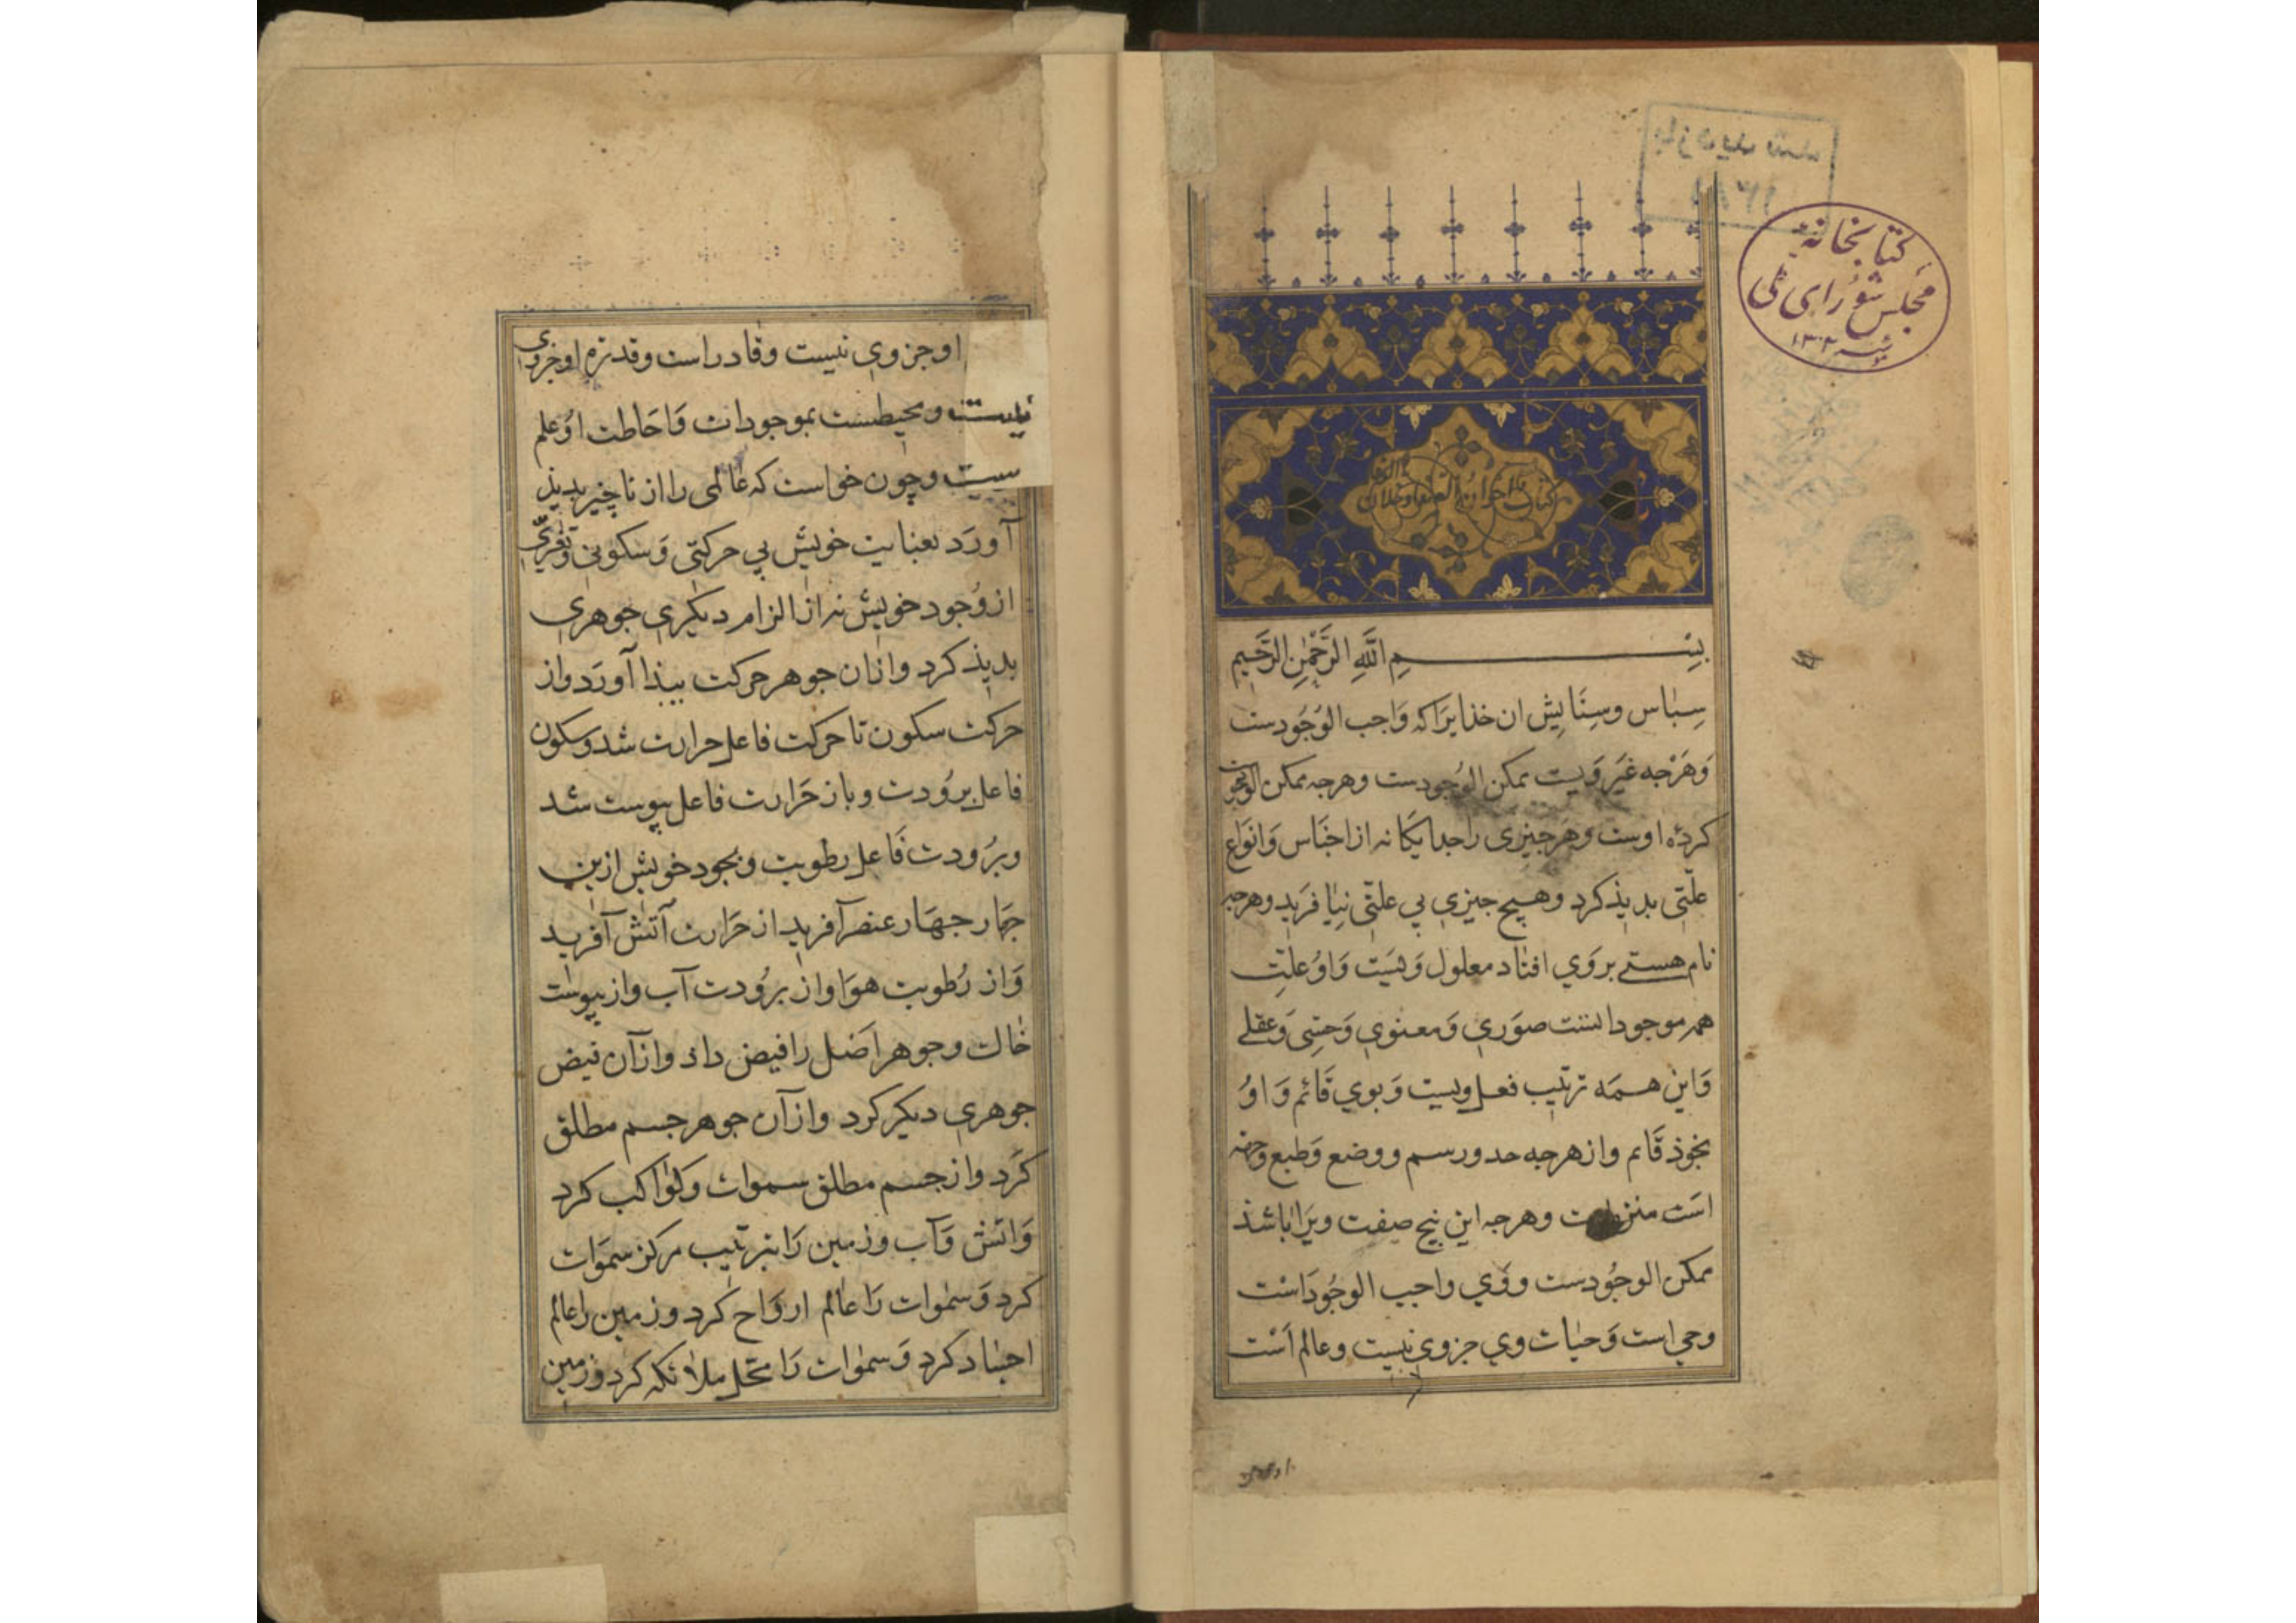 کتابخانهٔ
مجلس شورای ملی
۱۳۰۲
بازدید شد
بِسْمِ اللَّهِ الرَّحْمٰنِ الرَّحِيمِ
سِباس وسِتَایِش ان خذایرَاکه وَاجب الوُجُودست
وَهَرْجه غیَر وَیست ممکن الوُجودست وهرجه ممکن الوجود
کردهٔ اوست وهَرجیزی راجدایکَانه ازاجنَاس وَانوَاع
علّتی بدیذکرد وهیچ جیزی بی علتّی نیٰافرَید وهرجه
نام هستے بروَي افتاد معلول وَیسَت وَاوُ علتِ
همه موجوداتست صوَري وَمعنوي وَحسّی وَعقلے
وَاین همَه ترتیب فعل ویست وَبوي قَائم وَاوُ
بخوذ قَایم وازهرجه حدورسم ووضع وَطبع وجهة
اسَت منزه است وهرجه این نیج صفت ویرَاباشذ
ممکن الوجُودست ووَي واجب الوجُودَاسْت
وحي است وَحیٰات وي جزوي نیست وعالم اَسْت
اوجزوي نیست وقادراست وقدرة اوجزوی
نیست ومحیطست بموجودات وَاحَاطت اوُعلم
یست وچون خواست که عٰالمی رااز ناچیزبدیذ
آورَد بعنایت خویش بي حرکتی وَسکونی وتغیّری
ازوُجود خویش نه ازالزام دیکری جوهری
بدیذکرد وازان جوهر حرکت بیذاآورَد واز
حرکت سکون تاحرکت فاعل حرارت شد وسکون
فاعل برُودت وباز حَرارت فاعل یبوست شد
وبرُودت فَاعل رطوبت وبجود خویش ازین
جهار جهَار عنصر آفرید از حَرارت آتش آفرید
وَاز رُطوبت هوَا واز برُودت آب واز یبوسَت
خاك وجوهر اَصل رافیض داذ وازآن فیض
جوهری دیکرکرد وازآن جوهر جسم مطلق
کَرد وازجسم مطلق سمواتْ وکوٰاکب کرد
وَاتش وَآب وزمین رَابترتیب مرکز سموَات
کرد وَسمٰوات رَاعالم اروَاح کَرد وزمین راعالم
اجسٰادکرد وَسمٰوات رَا محَل ملائکه کرد وزمین